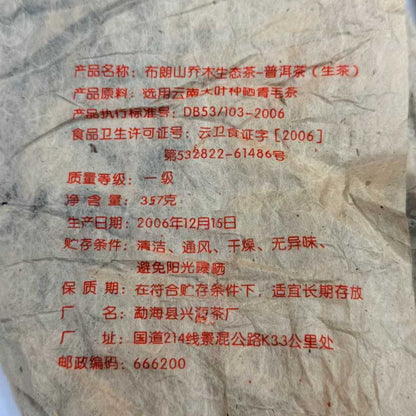 产品名称：布朗山乔木生态茶-普洱茶（生茶）
产品原料：选用云南大叶种晒青毛茶
产品执行标准号：DB53/103-2006
食品卫生许可证号：云卫食证字［2006］
第532822-61486号
质量等级：一级
净 含 量：357克
生产日期：2006年12月15日
贮存条件：清洁、通风、干燥、无异味、
避免阳光曝晒
保 质 期：在符合贮存条件下，适宜长期存放
厂 名：勐海县兴海茶厂
厂 址：国道214线景混公路K33公里处
邮政编码：666200